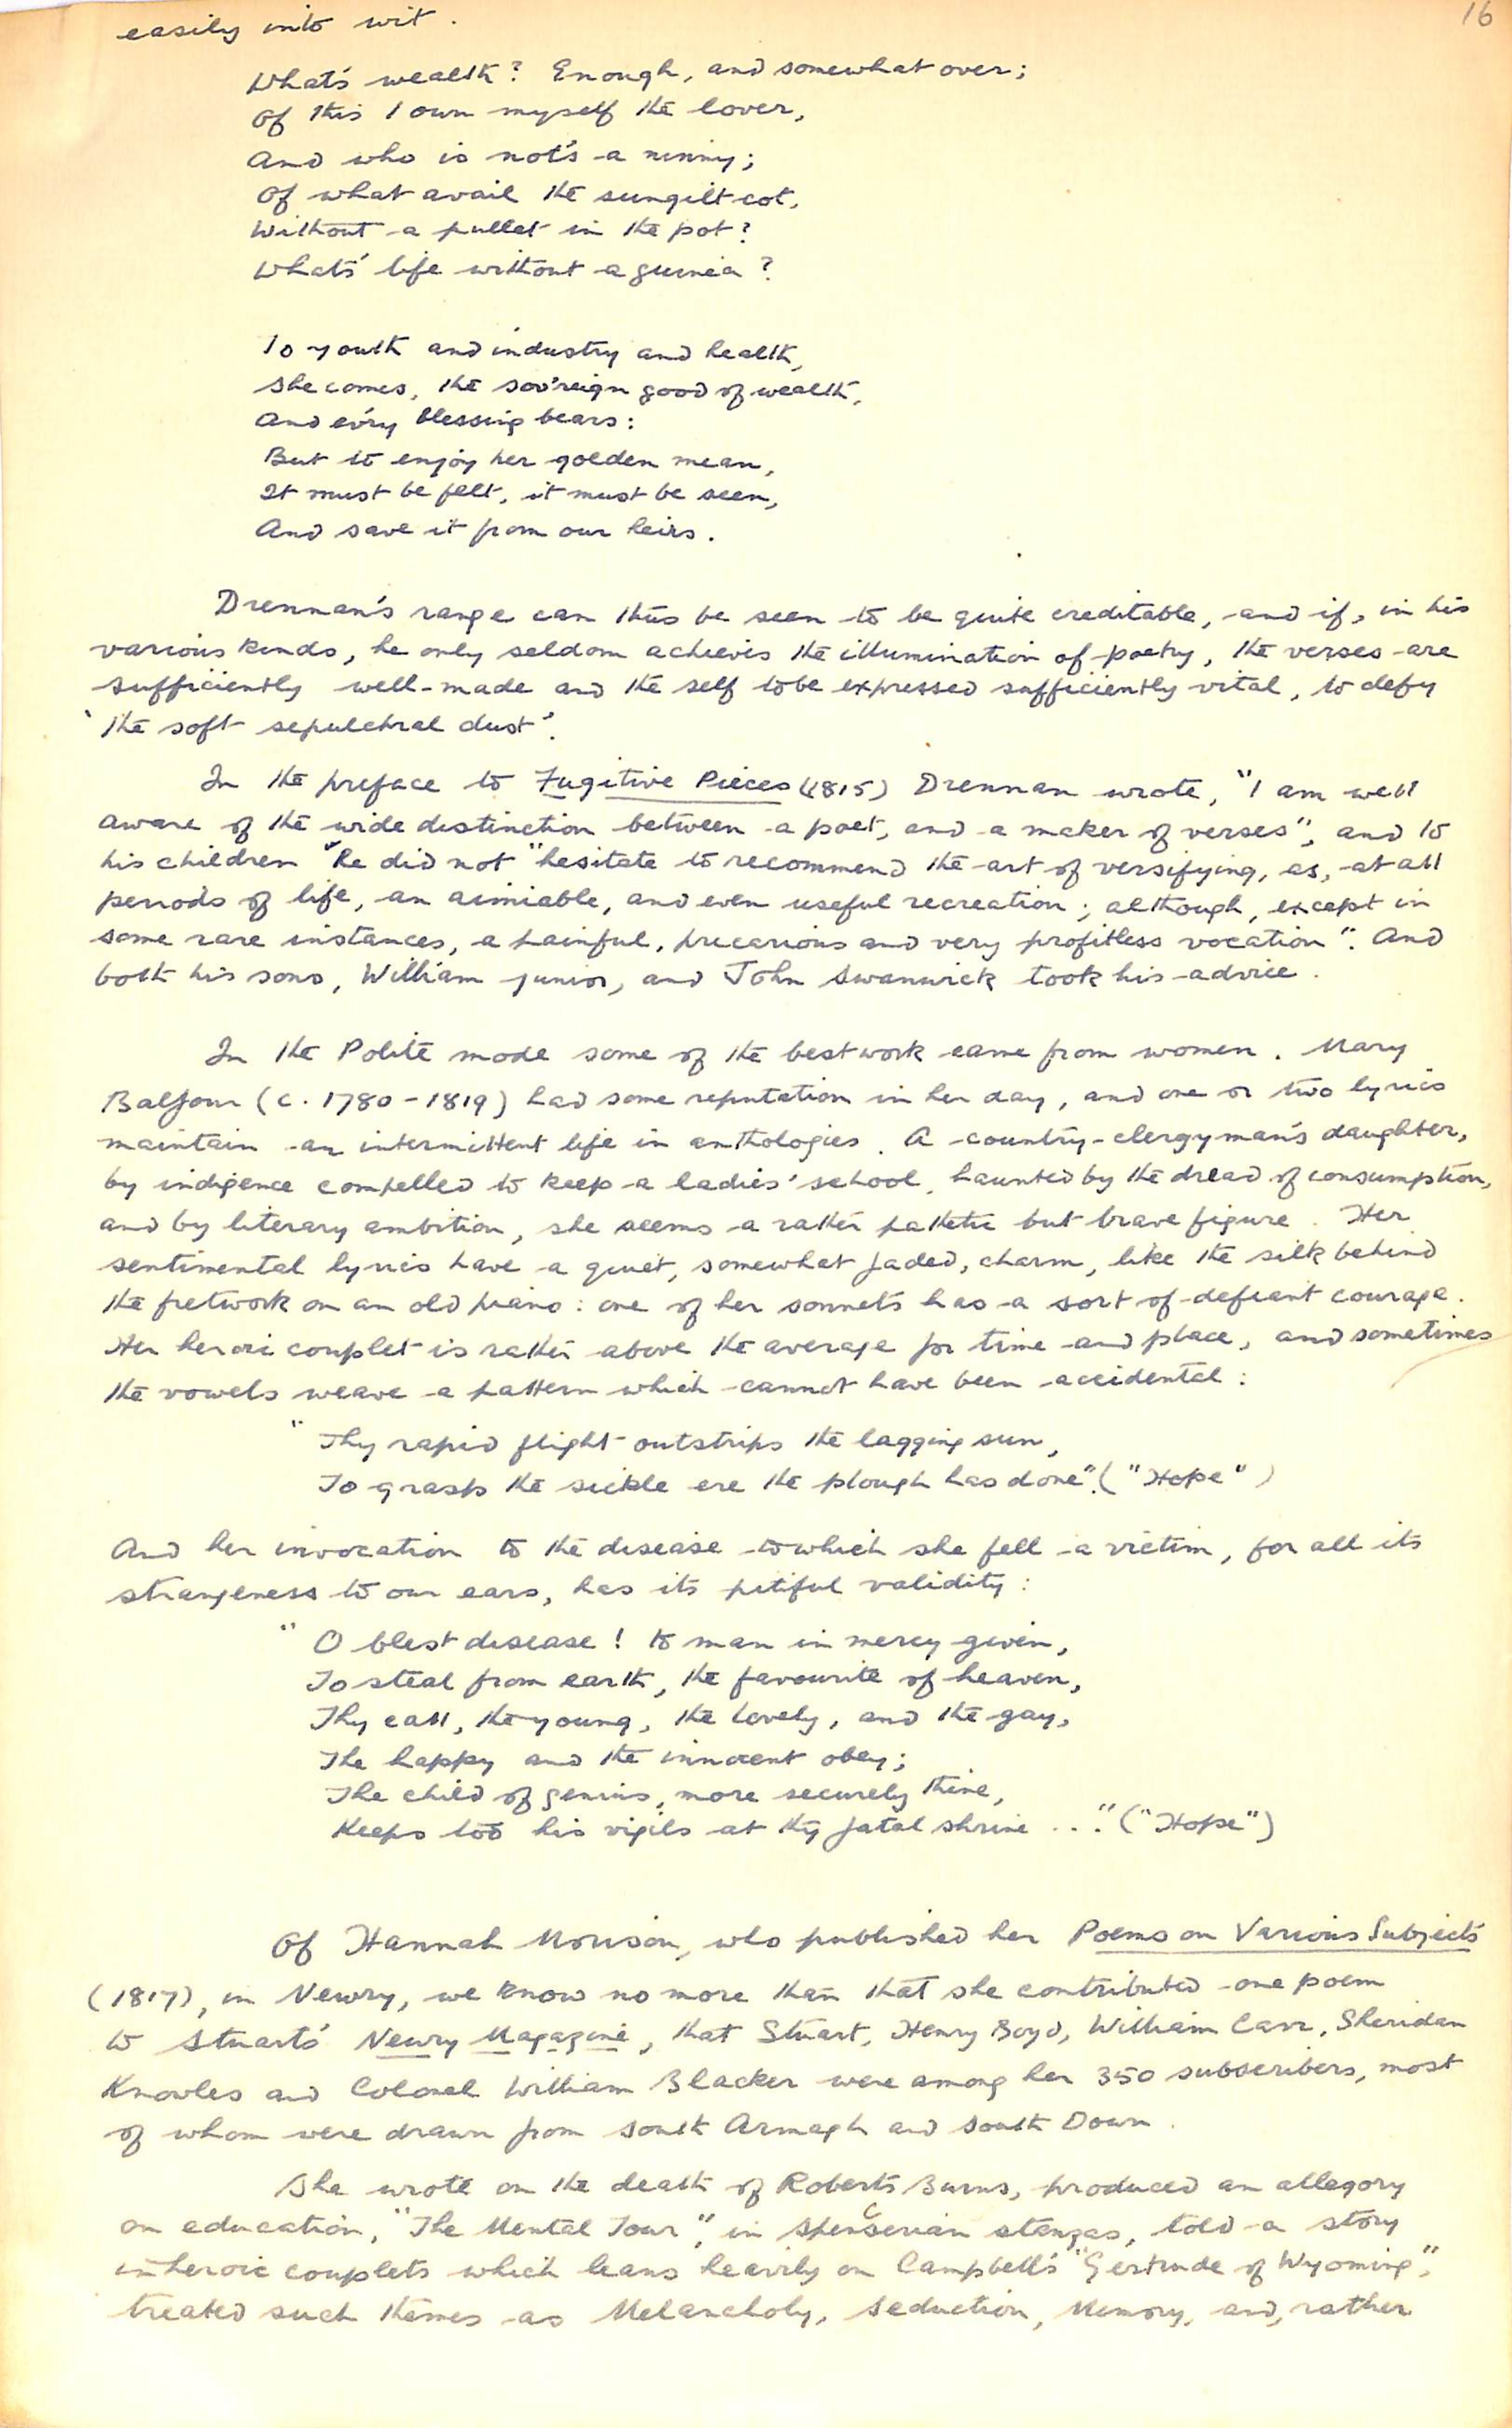 16
easily into wit.
What's wealth? Enough, and somewhat over;
Of this I own myself the lover,
And who is not's a ninny;
Of what avail the sungilt cot,
Without a pullet in the pot?
What's life without a guinea?
To youth and industry and health,
She comes, the sov'reign good of wealth,
And ev'ry blessing bears:
But to enjoy her golden mean,
It must be felt, it must be seen,
And save it from our heirs.
Drennan's range can thus be seen to be quite creditable, and if, in his
various kinds, he only seldom achieves the illumination of poetry, the verses are
sufficiently well-made and the self to be expressed sufficiently vital, to defy
'the soft sepulchral dust'.
In the preface to Fugitive Pieces (1815) Drennan wrote, "I am well
aware of the wide distinction between a poet, and a maker of verses", and to
his children "he did not "hesitate to recommend the art of versifying, as, at all
periods of life, an aimiable, and even useful recreation; although, except in
some rare instances, a painful, precarious and very profitless vocation". And
both his sons, William junior, and John Swanwick took his advice.
In the Polite mode some of the best work came from women. Mary
Balfour (c. 1780-1819) had some reputation in her day, and one or two lyrics
maintain an intermittent life in anthologies. A country-clergyman's daughter,
by indigence compelled to keep a ladies' school, haunted by the dread of consumption,
and by literary ambition, she seems a rather pathetic but brave figure. Her
sentimental lyrics have a quiet, somewhat faded, charm, like the silk behind
the fretwork on an old piano: one of her sonnets has a sort of defiant courage.
Her heroic couplet is rather above the average for time and place, and sometimes
the vowels weave a pattern which cannot have been accidental:
"Thy rapid flight outstrips the lagging sun,
To grasp the sickle ere the plough has done". ("Hope")
And her invocation to the disease to which she fell a victim, for all its
strangeness to our ears, has its pitiful validity:
"O blest disease! to man in mercy given,
To steal from earth, the favourite of heaven,
Thy call, the young, the lovely, and the gay,
The happy and the innocent obey;
The child of genius, more securely thine,
Keeps too his vigils at thy fatal shrine ..." ("Hope")
Of Hannah Morison, who published her Poems on Various Subjects
(1817), in Newry, we know no more than that she contributed one poem
to Stuart's Newry Magazine, that Stuart, Henry Boyd, William Carr, Sheridan
Knowles and Colonel William Blacker were among her 350 subscribers, most
of whom were drawn from south Armagh and south Down.
She wrote on the death of Roberts Burns, produced an allegory
on education, "The Mental Tour", in Spencerian stanzas, told a story
in heroic couplets which leans heavily on Campbell's "Gertrude of Wyoming",
treated such themes as Melancholy, Seduction, Memory, and, rather